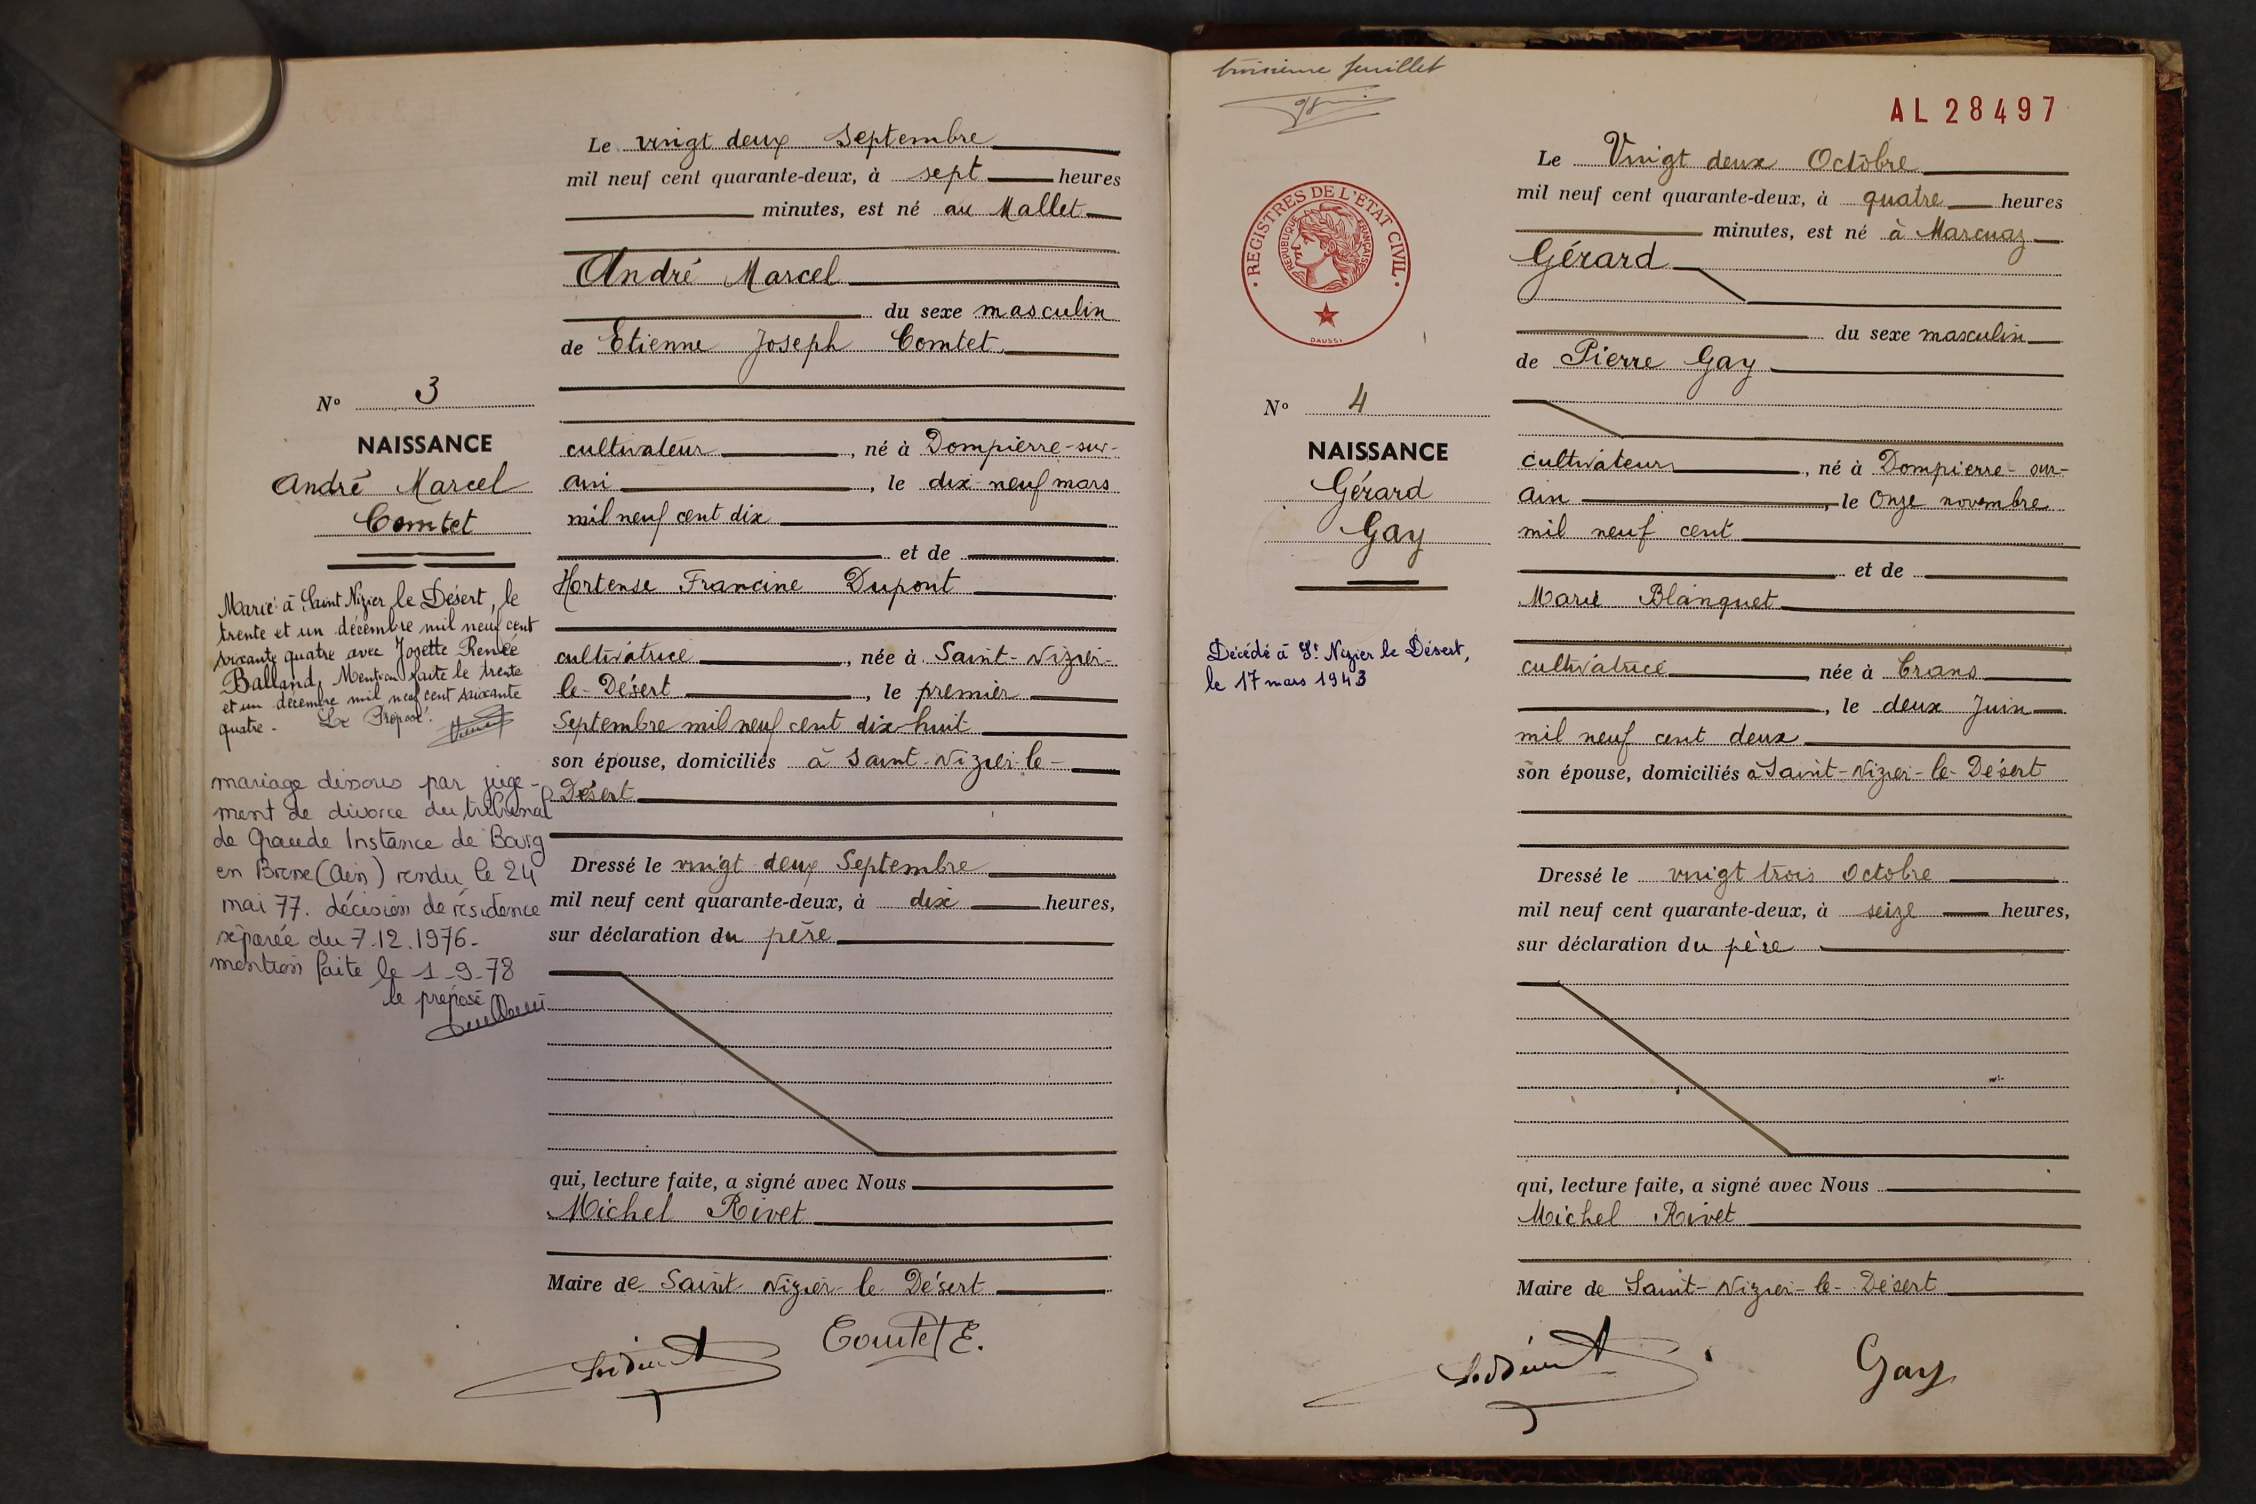 Le vingt deux Septembre
mil neuf cent quarante-deux, à sept heures
minutes, est né au Mallet
André Marcel
du sexe masculin
de Etienne Joseph Comtet
N° 3
NAISSANCE
André Marcel
Comtet
cultivateur, né à Dompierre-sur-
ain, le dix neuf mars
mil neuf cent dix
et de
Hortense Francine Dupont
cultivatrice, née à Saint-Nizier-
le-Désert, le premier
Septembre mil neuf cent dix-huit
son épouse, domiciliés à Saint-Nizier-le-
Désert
Dressé le vingt deux Septembre
mil neuf cent quarante-deux, à dix heures,
sur déclaration du père
qui, lecture faite, a signé avec Nous
Michel Rivet
Maire de Saint Nizier le Désert
Comtet E.
Marié à Saint Nizier le Désert, le
trente et un décembre mil neuf cent
soixante quatre avec Josette Renée
Balland. Mention faite le trente
et un décembre mil neuf cent soixante
quatre. Le Préposé.
mariage dissous par juge-
ment de divorce du tribunal
de Grande Instance de Bourg
en Bresse (Ain) rendu le 24
mai 77. décision de résidence
séparée du 7.12.1976-
mention faite le 1-9-78
le préposé
troisième feuillet
AL 28497
REGISTRES DE L'ETAT CIVIL
REPUBLIQUE FRANÇAISE
DAUSSY
Le Vingt deux Octobre
mil neuf cent quarante-deux, à quatre heures
minutes, est né à Marcuaz
Gérard
du sexe masculin
de Pierre Gay
N° 4
NAISSANCE
Gérard
Gay
Décédé à St Nizier le Désert,
le 17 mars 1943
cultivateur, né à Dompierre-sur-
ain, le Onze novembre
mil neuf cent
et de
Marie Blanquet
cultivatrice née à Crans
, le deux Juin
mil neuf cent deux
son épouse, domiciliés à Saint-Nizier-le-Désert
Dressé le vingt trois Octobre
mil neuf cent quarante-deux, à seize heures,
sur déclaration du père
qui, lecture faite, a signé avec Nous
Michel Rivet
Maire de Saint-Nizier-le-Désert
Gay